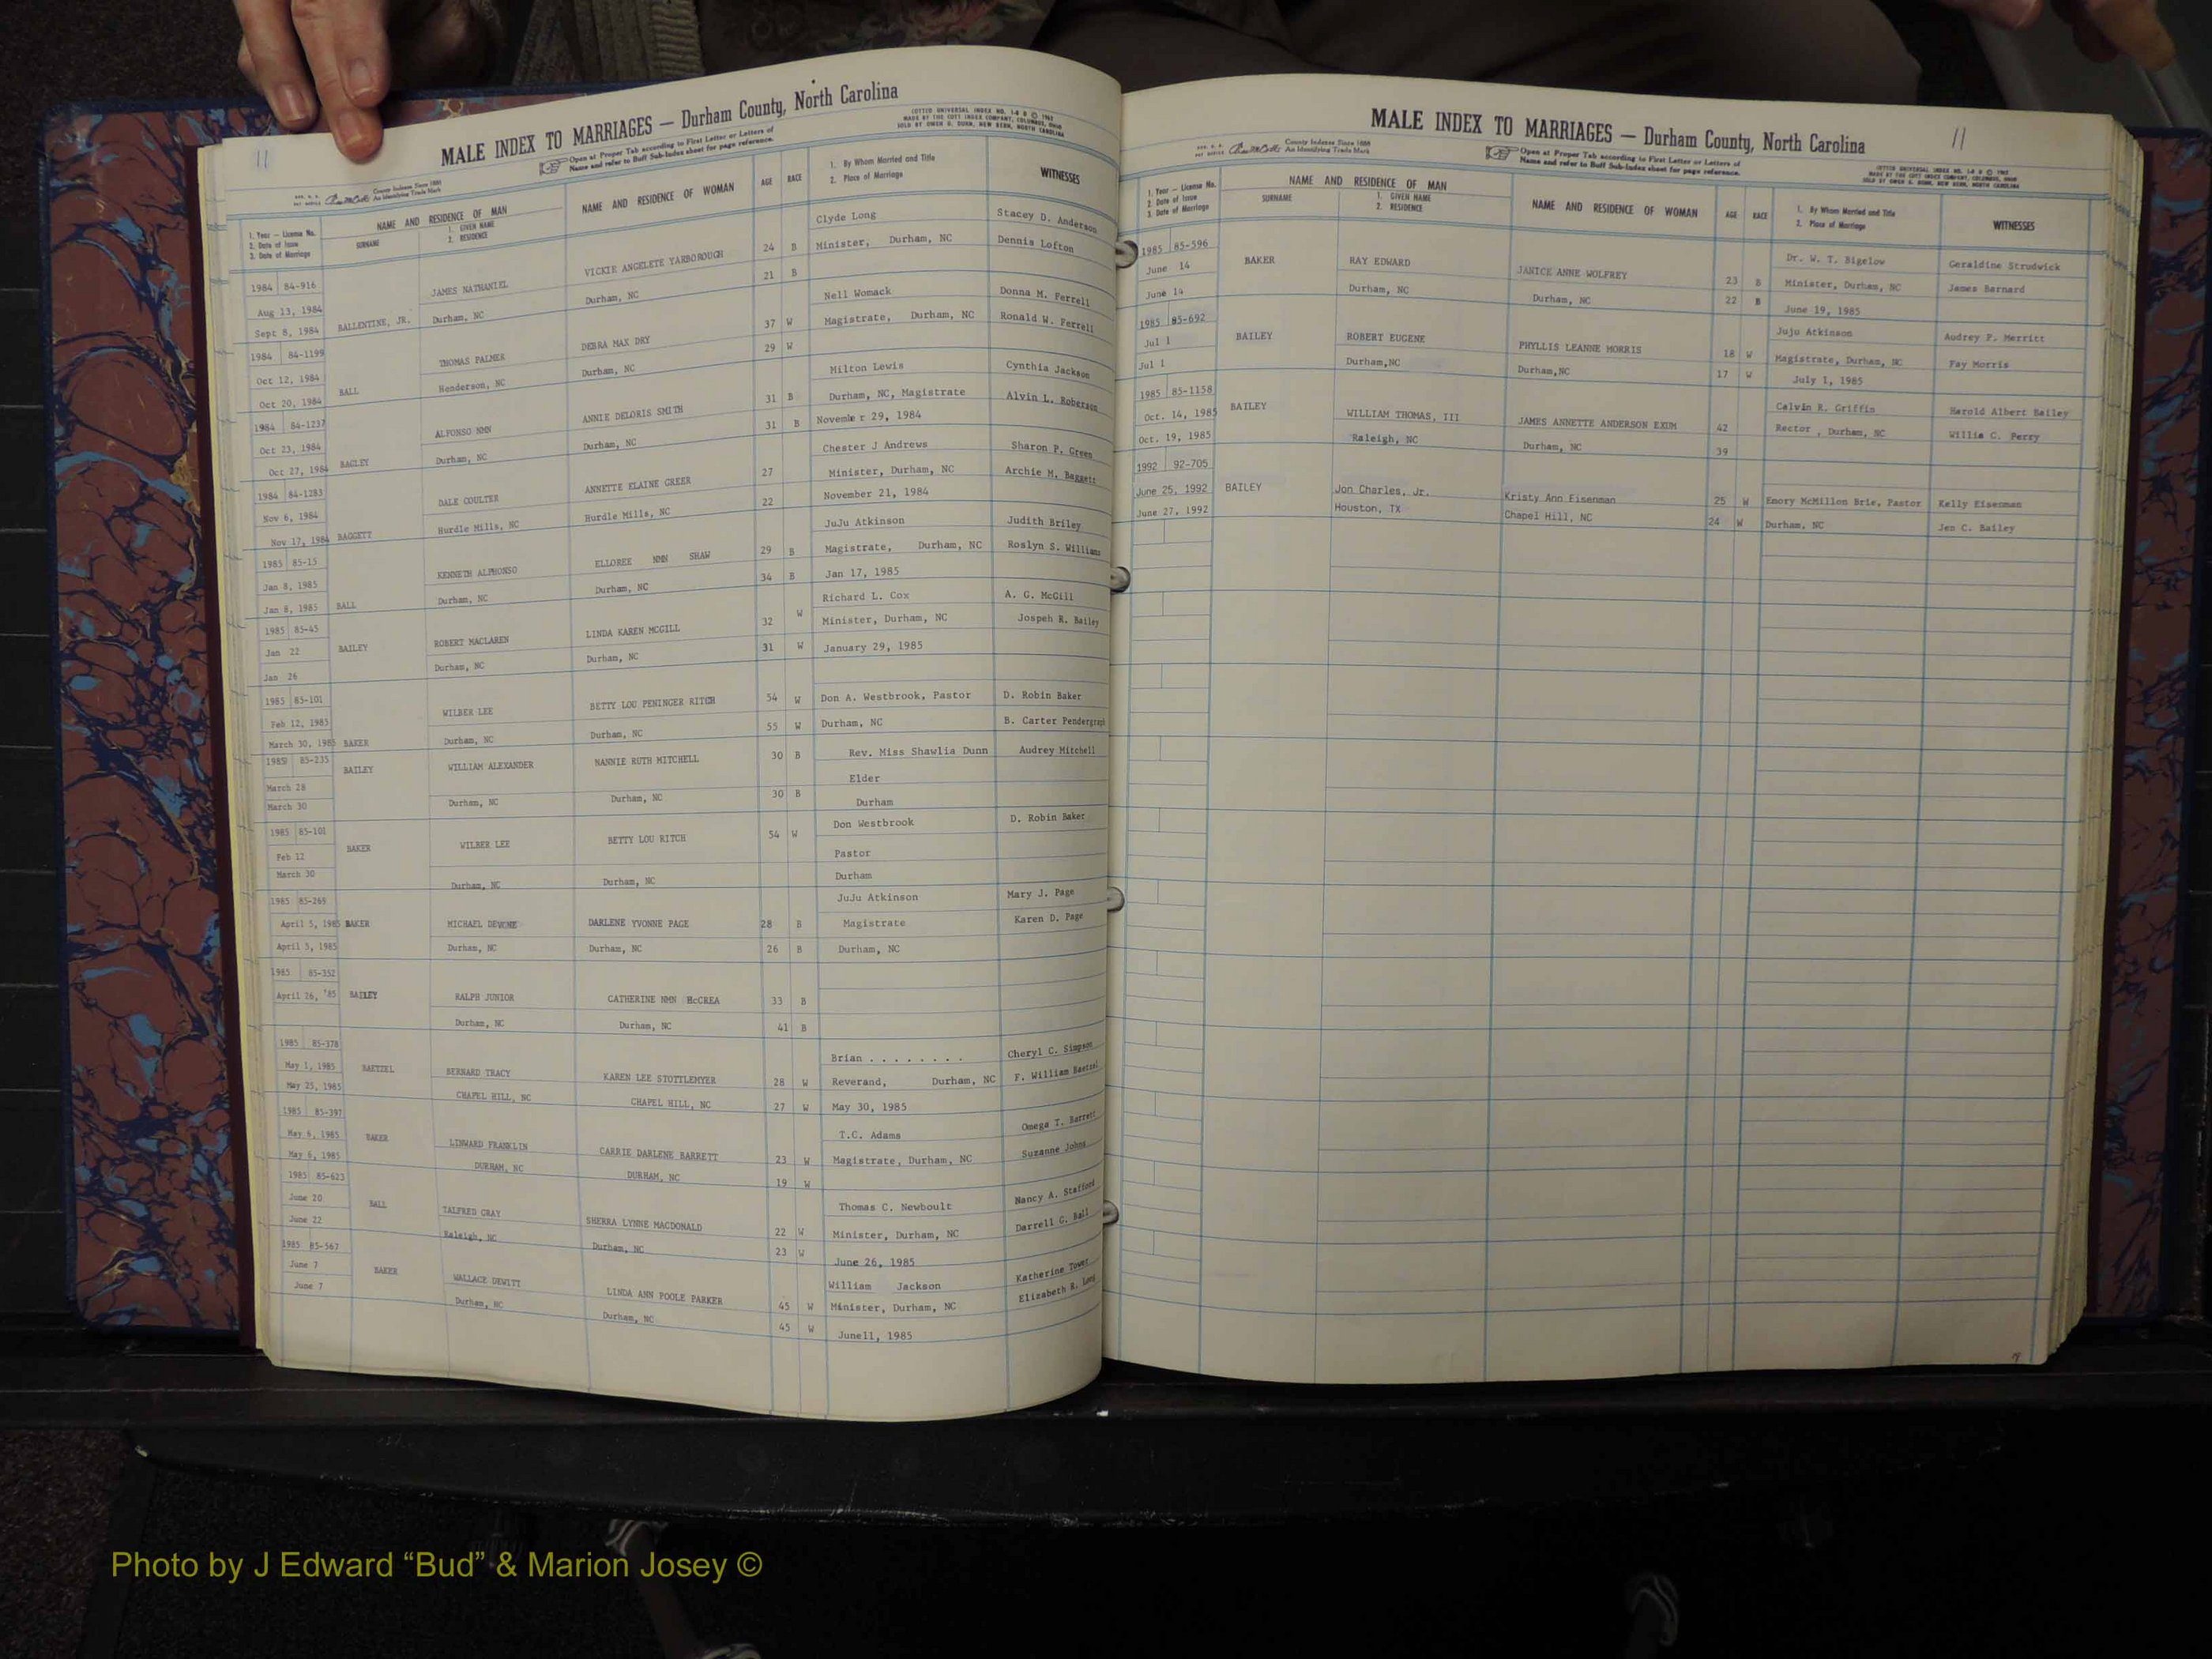 11
MALE INDEX TO MARRIAGES — Durham County, North Carolina
COTTCO UNIVERSAL INDEX NO. 1-8 B © 1962
MADE BY THE COTT INDEX COMPANY, COLUMBUS, OHIO
SOLD BY OWEN G. DUNN, NEW BERN, NORTH CAROLINA
Open at Proper Tab according to First Letter or Letters of
Name and refer to Buff Sub-Index sheet for page reference.
County Indexes Since 1888
An Identifying Trade Mark
1. Year — License No.
2. Date of Issue
3. Date of Marriage
NAME AND RESIDENCE OF MAN
SURNAME
1. GIVEN NAME
2. RESIDENCE
NAME AND RESIDENCE OF WOMAN
AGE RACE
1. By Whom Married and Title
2. Place of Marriage
WITNESSES
1984 84-916 JAMES NATHANIEL VICKIE ANGELETE YARBOROUGH 24 B Clyde Long Stacey D. Anderson
Aug 13, 1984 Durham, NC Durham, NC 21 B Minister, Durham, NC Dennis Lofton
Sept 8, 1984 BALLENTINE, JR.
1984 84-1199 THOMAS PALMER DEBRA MAX DRY 37 W Nell Womack Donna M. Ferrell
Oct 12, 1984 Henderson, NC Durham, NC 29 W Magistrate, Durham, NC Ronald W. Ferrell
Oct 20, 1984 BALL
1984 84-1237 ALFONSO NMN ANNIE DELORIS SMITH 31 B Milton Lewis Cynthia Jackson
Oct 23, 1984 Durham, NC Durham, NC 31 B Durham, NC, Magistrate Alvin L. Roberson
Oct 27, 1984 BAGLEY November 29, 1984
1984 84-1283 DALE COULTER ANNETTE ELAINE GREER 27 Chester J Andrews Sharon P. Green
Nov 6, 1984 Hurdle Mills, NC Hurdle Mills, NC 22 Minister, Durham, NC Archie M. Baggett
Nov 17, 1984 BAGGETT November 21, 1984
1985 85-15 KENNETH ALPHONSO ELLOREE NMN SHAW 29 B JuJu Atkinson Judith Briley
Jan 8, 1985 Durham, NC Durham, NC 34 B Magistrate, Durham, NC Roslyn S. Williams
Jan 8, 1985 BALL Jan 17, 1985
1985 85-45 ROBERT MACLAREN LINDA KAREN MCGILL 32 W Richard L. Cox A. G. McGill
Jan 22 BAILEY Durham, NC Durham, NC 31 W Minister, Durham, NC Jospeh R. Bailey
Jan 26 January 29, 1985
1985 85-101 WILBER LEE BETTY LOU PENINGER RITCH 54 W Don A. Westbrook, Pastor D. Robin Baker
Feb 12, 1985 Durham, NC Durham, NC 55 W Durham, NC B. Carter Pendergraph
March 30, 1985 BAKER
1985 85-235 BAILEY WILLIAM ALEXANDER NANNIE RUTH MITCHELL 30 B Rev. Miss Shawlia Dunn Audrey Mitchell
March 28 Elder
March 30 Durham, NC Durham, NC 30 B Durham
1985 85-101 BAKER WILBER LEE BETTY LOU RITCH 54 W Don Westbrook D. Robin Baker
Feb 12 Pastor
March 30 Durham, NC Durham, NC Durham
1985 85-269 JuJu Atkinson Mary J. Page
April 5, 1985 BAKER MICHAEL DEVONE DARLENE YVONNE PAGE 28 B Magistrate Karen D. Page
April 5, 1985 Durham, NC Durham, NC 26 B Durham, NC
1985 85-352
April 26, '85 BAILEY RALPH JUNIOR CATHERINE NMN McCREA 33 B
Durham, NC Durham, NC 41 B
1985 85-378 Brian . . . . . . . . Cheryl C. Simpson
May 1, 1985 BAETZEL BERNARD TRACY KAREN LEE STOTTLEMYER 28 W Reverand, Durham, NC F. William Baetzel
May 25, 1985 CHAPEL HILL, NC CHAPEL HILL, NC 27 W May 30, 1985
1985 85-397 T.C. Adams Omega T. Barrett
May 6, 1985 BAKER LINWARD FRANKLIN CARRIE DARLENE BARRETT 23 W Magistrate, Durham, NC Suzanne Johns
May 6, 1985 DURHAM, NC DURHAM, NC 19 W
1985 85-623 Thomas C. Newboult Nancy A. Stafford
June 20 BALL TALFRED GRAY SHERRA LYNNE MACDONALD 22 W Minister, Durham, NC Darrell G. Ball
June 22 Raleigh, NC Durham, NC 23 W June 26, 1985
1985 85-567 William Jackson Katherine Tower
June 7 BAKER WALLACE DEWITT LINDA ANN POOLE PARKER 45 W Minister, Durham, NC Elizabeth R. Long
June 7 Durham, NC Durham, NC 45 W June11, 1985
MALE INDEX TO MARRIAGES — Durham County, North Carolina
11
County Indexes Since 1888
An Identifying Trade Mark
Open at Proper Tab according to First Letter or Letters of
Name and refer to Buff Sub-Index sheet for page reference.
COTTCO UNIVERSAL INDEX NO. 1-8 B © 1962
MADE BY THE COTT INDEX COMPANY, COLUMBUS, OHIO
SOLD BY OWEN G. DUNN, NEW BERN, NORTH CAROLINA
1. Year — License No.
2. Date of Issue
3. Date of Marriage
NAME AND RESIDENCE OF MAN
SURNAME
1. GIVEN NAME
2. RESIDENCE
NAME AND RESIDENCE OF WOMAN
AGE RACE
1. By Whom Married and Title
2. Place of Marriage
WITNESSES
1985 85-596 BAKER RAY EDWARD JANICE ANNE WOLFREY 23 B Dr. W. T. Bigelow Geraldine Strudwick
June 14 Durham, NC Durham, NC 22 B Minister, Durham, NC James Barnard
June 14 June 19, 1985
1985 85-692 BAILEY ROBERT EUGENE PHYLLIS LEANNE MORRIS 18 W Juju Atkinson Audrey P. Merritt
Jul 1 Durham,NC Durham,NC 17 W Magistrate, Durham, NC Fay Morris
Jul 1 July 1, 1985
1985 85-1158 BAILEY WILLIAM THOMAS, III JAMES ANNETTE ANDERSON EXUM 42 Calvin R. Griffin Harold Albert Bailey
Oct. 14, 1985 Raleigh, NC Durham, NC 39 Rector , Durham, NC Willie C. Perry
Oct. 19, 1985
1992 92-705
June 25, 1992 BAILEY Jon Charles, Jr. Kristy Ann Eisenman 25 W Emory McMillon Brie, Pastor Kelly Eisenman
June 27, 1992 Houston, TX Chapel Hill, NC 24 W Durham, NC Jen C. Bailey
Photo by J Edward “Bud” & Marion Josey ©